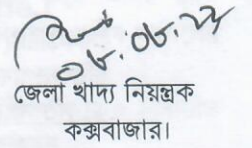 ০৮.০৮.২২
জেলা খাদ্য নিয়ন্ত্রক
কক্সবাজার।